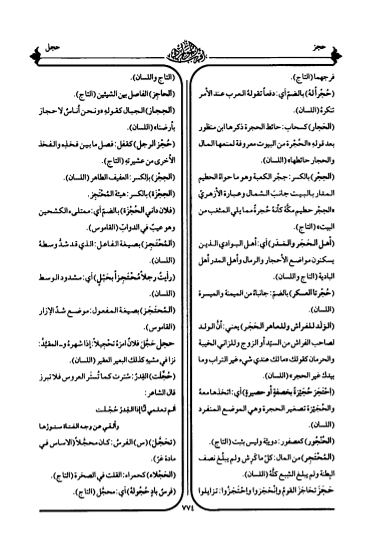 حجز
حجل
فرجهما (التاج).
(حُجْراً له) بالضم أي: دفعاً تقوله العرب عند الأمر
تنكره (اللسان).
(الحَجار) كسحاب: حائط الحجرة ذكرها ابن منظور
بعد قوله «الحُجْرة من البيوت معروفة لمنعها المال
والحجار حائطها» (اللسان).
(الحِجْر) بالكسر: حجر الكعبة وهو ما حواه الحطيم
المدار بالبيت جانب الشمال وعبارة الأزهريّ
«الحِجْر حطيم مكّة كأنه حُجرة مما يلي المثعب من
البيت» (التاج).
(أهل الحَجَر والمَدَر) أي: أهل البوادي الذين
يسكنون مواضع الأحجار والرمال وأهل المدر أهل
البادية (التاج واللسان).
(حُجْرتا العسكر) بالضم: جانباه من الميمنة والميسرة
(اللسان).
(الولد للفراش وللعاهر الحَجَر) يعني: أنّ الولد
لصاحب الفراش من السيّد أو الزوج وللزاني الخيبة
والحرمان كقولك «ما لك عندي شيء غير التراب وما
بيدك غير الحجر» (اللسان).
(احتَجَرَ حُجَيْرَةً بخصفةٍ أو حصيرٍ) أي: اتخذها معه
والحُجَيْرَة تصغير الحجرة وهي الموضع المنفرد
(اللسان).
(الحُنْجُور) كعصفور: دويبّة وليس بثبت (التاج).
(المُحْتَجِر) من المال: كلّ ما كَرِش ولم يبلغ نصف
البِطنة ولم يبلغ الشبع كلّهُ (اللسان).
حَجَزَ تَحَاجَزَ القومُ وانْحَجَزوا واحْتَجَزُوا: تزايلوا
(التاج واللسان).
(الحاجِز) الفاصل بين الشيئين (التاج).
(الحِجاز) الجبال كقوله «ونحن أناسٌ لا حجاز
بأرضنا» (اللسان).
(حُجْز الرجل) كقفل: فصل ما بين فخذه والفخذ
الأخرى من عشيرته (التاج).
(الحِجْز) بالكسر: العفيف الطاهر (اللسان).
(الحِجْزَة) بالكسر: هيئة المُحْتَجِز.
(فلان داني الحُجْزَة) بالضم أي: ممتلىء الكشحين
وهو عيبٌ في الدوابّ (القاموس).
(المُحْتَجِز) بصيغة الفاعل: الذي قد شدّ وسطهُ
(اللسان).
(رأيتُ رجلاً مُحْتَجِزاً بحَبْلٍ) أي: مشدود الوسط
(اللسان).
(المُحتَجَز) بصيغة المفعول: موضع شدّ الإزار
(القاموس).
حجل حَجَّلَ فلانٌ امرَهُ تحْجِيلاً: إذا شهرهُ ـ المقيّدُ:
نزا في مشيه كذلك البعير العقير (اللسان).
(حُجِّلَت) القِدْرُ: سُتِرت كما تُستَر العروس فلا تبرز
قال الشاعر:
ألم تعلمي أنّا إذا القِدْرُ حُجّلت
وألقي عن وجه الفتاة ستورُها
(تحَجَّلَ) (س) الفرسُ: كان محجّلاً (الأساس في
مادة غرّ).
(الحَجْلاء) كحمراء: القلت في الصخرة (التاج).
(فرسٌ بادٍ حُجُولُهُ) أي: محجّل (التاج).
٧٧٤